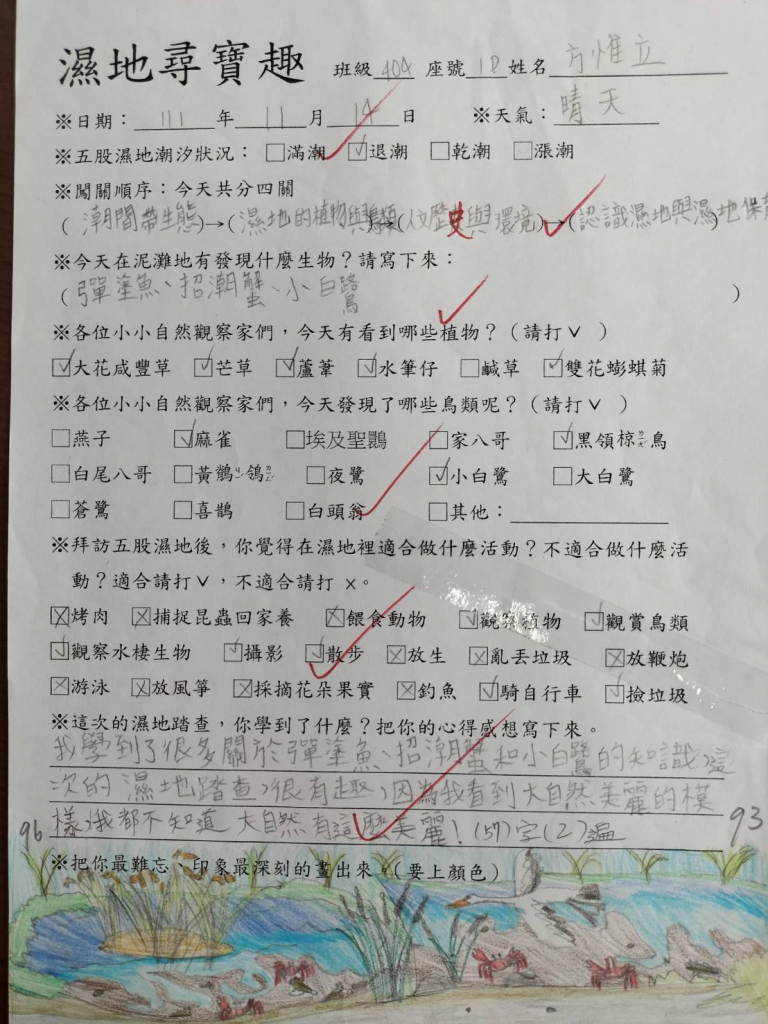 濕地尋寶趣 班級 404 座號 18 姓名 方惟立
※日期：111年11月14日 ※天氣：晴天
※五股濕地潮汐狀況：□滿潮 ☑退潮 □乾潮 □漲潮
※闖關順序：今天共分四關
(潮間帶生態)→(濕地的植物與鳥類)→(人文歷史與環境)→(認識濕地與濕地保育)
※今天在泥灘地有發現什麼生物？請寫下來：
(彈塗魚、招潮蟹、小白鷺)
※各位小小自然觀察家們，今天有看到哪些植物？（請打∨ ）
☑大花咸豐草 ☑芒草 ☑蘆葦 ☑水筆仔 □鹹草 ☑雙花蟛蜞菊
※各位小小自然觀察家們，今天發現了哪些鳥類呢？（請打∨ ）
□燕子 ☑麻雀 □埃及聖鸛 □家八哥 ☑黑領椋鳥
□白尾八哥 □黃鶺鴒 □夜鷺 ☑小白鷺 □大白鷺
□蒼鷺 □喜鵲 □白頭翁 □其他：
※拜訪五股濕地後，你覺得在濕地裡適合做什麼活動？不適合做什麼活
動？適合請打∨，不適合請打 ×。
☒烤肉 ☒捕捉昆蟲回家養 ☒餵食動物 ☑觀察植物 ☑觀賞鳥類
☑觀察水棲生物 ☑攝影 ☑散步 ☒放生 ☒亂丟垃圾 ☒放鞭炮
☒游泳 ☒放風箏 ☒採摘花朵果實 ☒釣魚 ☑騎自行車 ☑撿垃圾
※這次的濕地踏查，你學到了什麼？把你的心得感想寫下來。
我學到了很多關於彈塗魚、招潮蟹和小白鷺的知識，這
次的濕地踏查，很有趣，因為我看到大自然美麗的模
樣，我都不知道大自然有這麼美麗！(57)字(2)遍
96 93
※把你最難忘、印象最深刻的畫出來。（要上顏色）